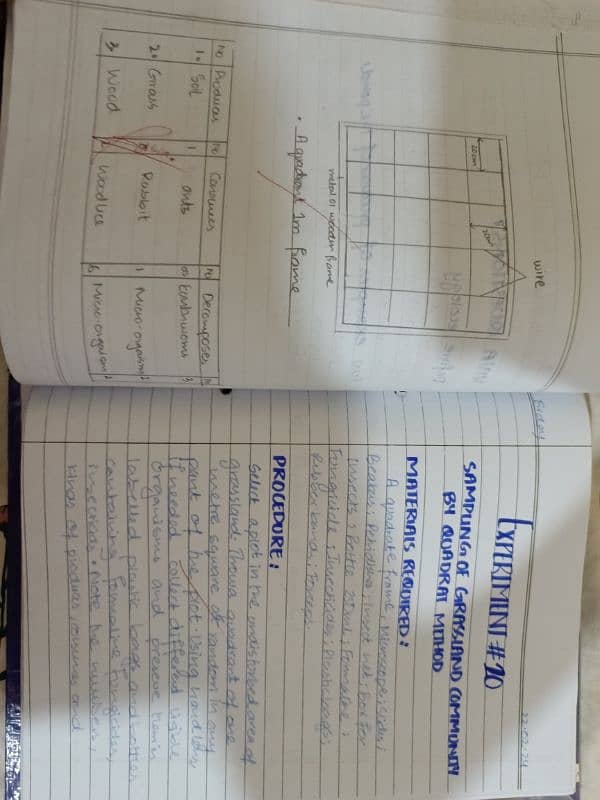 Friday
22-02-24
EXPERIMINT #10
SAMPLING OF GRASSLAND COMMUNITY
BY QUADRAT METHOD
MATERIALS REQUIRED:
A quadrate frame, Microscope, slides,
Beakers, Petridishes, Insect net, Box for
insects, Bottle 250ml, Formaline,
Fungicide, Insecticides, Plastic bags,
Rubber band, Forceps.
PROCEDURE:
Select a plot in the undisturbed area of
grassland. Throw a quadrant of one
metre square at random in any
part of the plot. Using hand lens
if needed collect different visible
organisms and preserve them in
labelled plastic bags and bottles
containing formaline, fungicides,
insecticides. Note the numbers,
kinds of producers, consumers and
wire
20cm
20cm
metal or wooden frame
• A quadrant 1m frame
No Producers No Consumers No Decomposers
1. Soil 1 ants Earthworms 3
2. Grass Rabbit 1 Micro-organism 2
3. Wood Woodlice Micro-organism 2